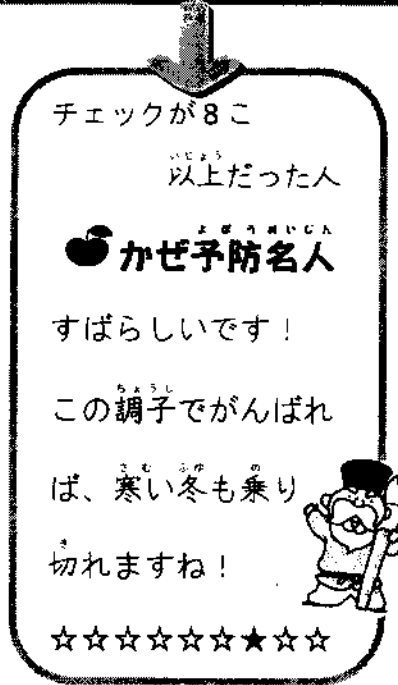 チェックが8こ
以上だった人
かぜ予防名人
すばらしいです！
この調子でがんばれ
ば、寒い冬も乗り
切れますね！
☆☆☆☆☆☆★☆☆